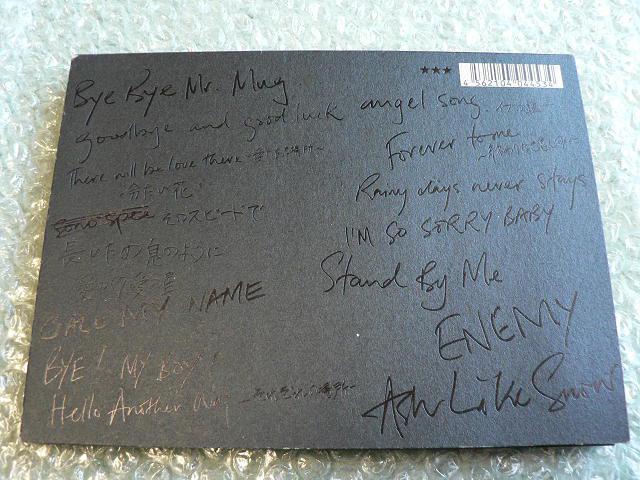 ★★★
4562104044534
Bye Bye Mr. Mug
Goodbye and good luck angel song -イヴの鐘-
There will be love there -愛のある場所-
Forever to me ~終わりなき悲しみ~
冷たい花
Rainy days never stays
そのスピードで
I'M SO SORRY BABY
長いため息のように
Stand By Me
CALL MY NAME
ENEMY
BYE! MY Boy!
Hello Another Way -それぞれの場所-
Ash Like Snow